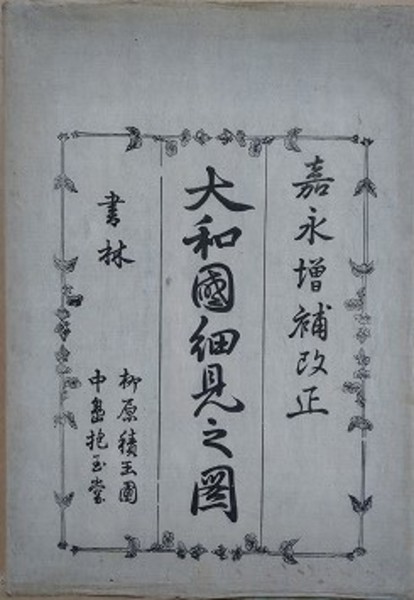 嘉永増補改正
大和國細見之圖
書林
柳原積玉圃
中島抱玉堂